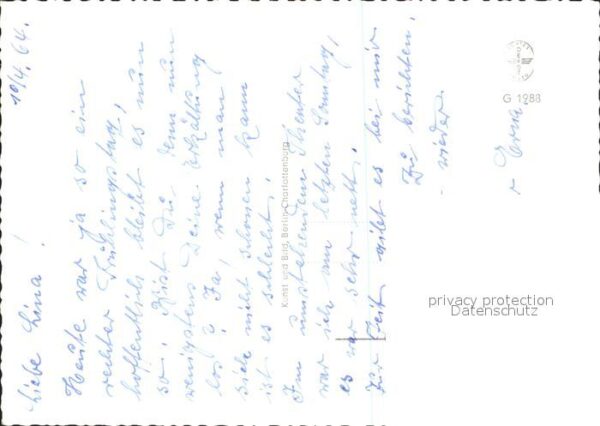 10/4.64.
Liebe Lina!
Heute war ja so ein
rechter Frühlingstag,
hoffentlich bleibt es nun
so. Bist Du denn nun
wenigstens Deine Erkältung
los? Ja, wenn man
sich nicht schonen kann
ist es schlecht.
Im umstehenden Theater
war ich am letzten Sonntag,
es war sehr nett.
Zur Zeit gibt es bei mir
zu berichten.
wieder
Erna
Kunst und Bild, Berlin-Charlottenburg
G 1988
privacy protection
Datenschutz